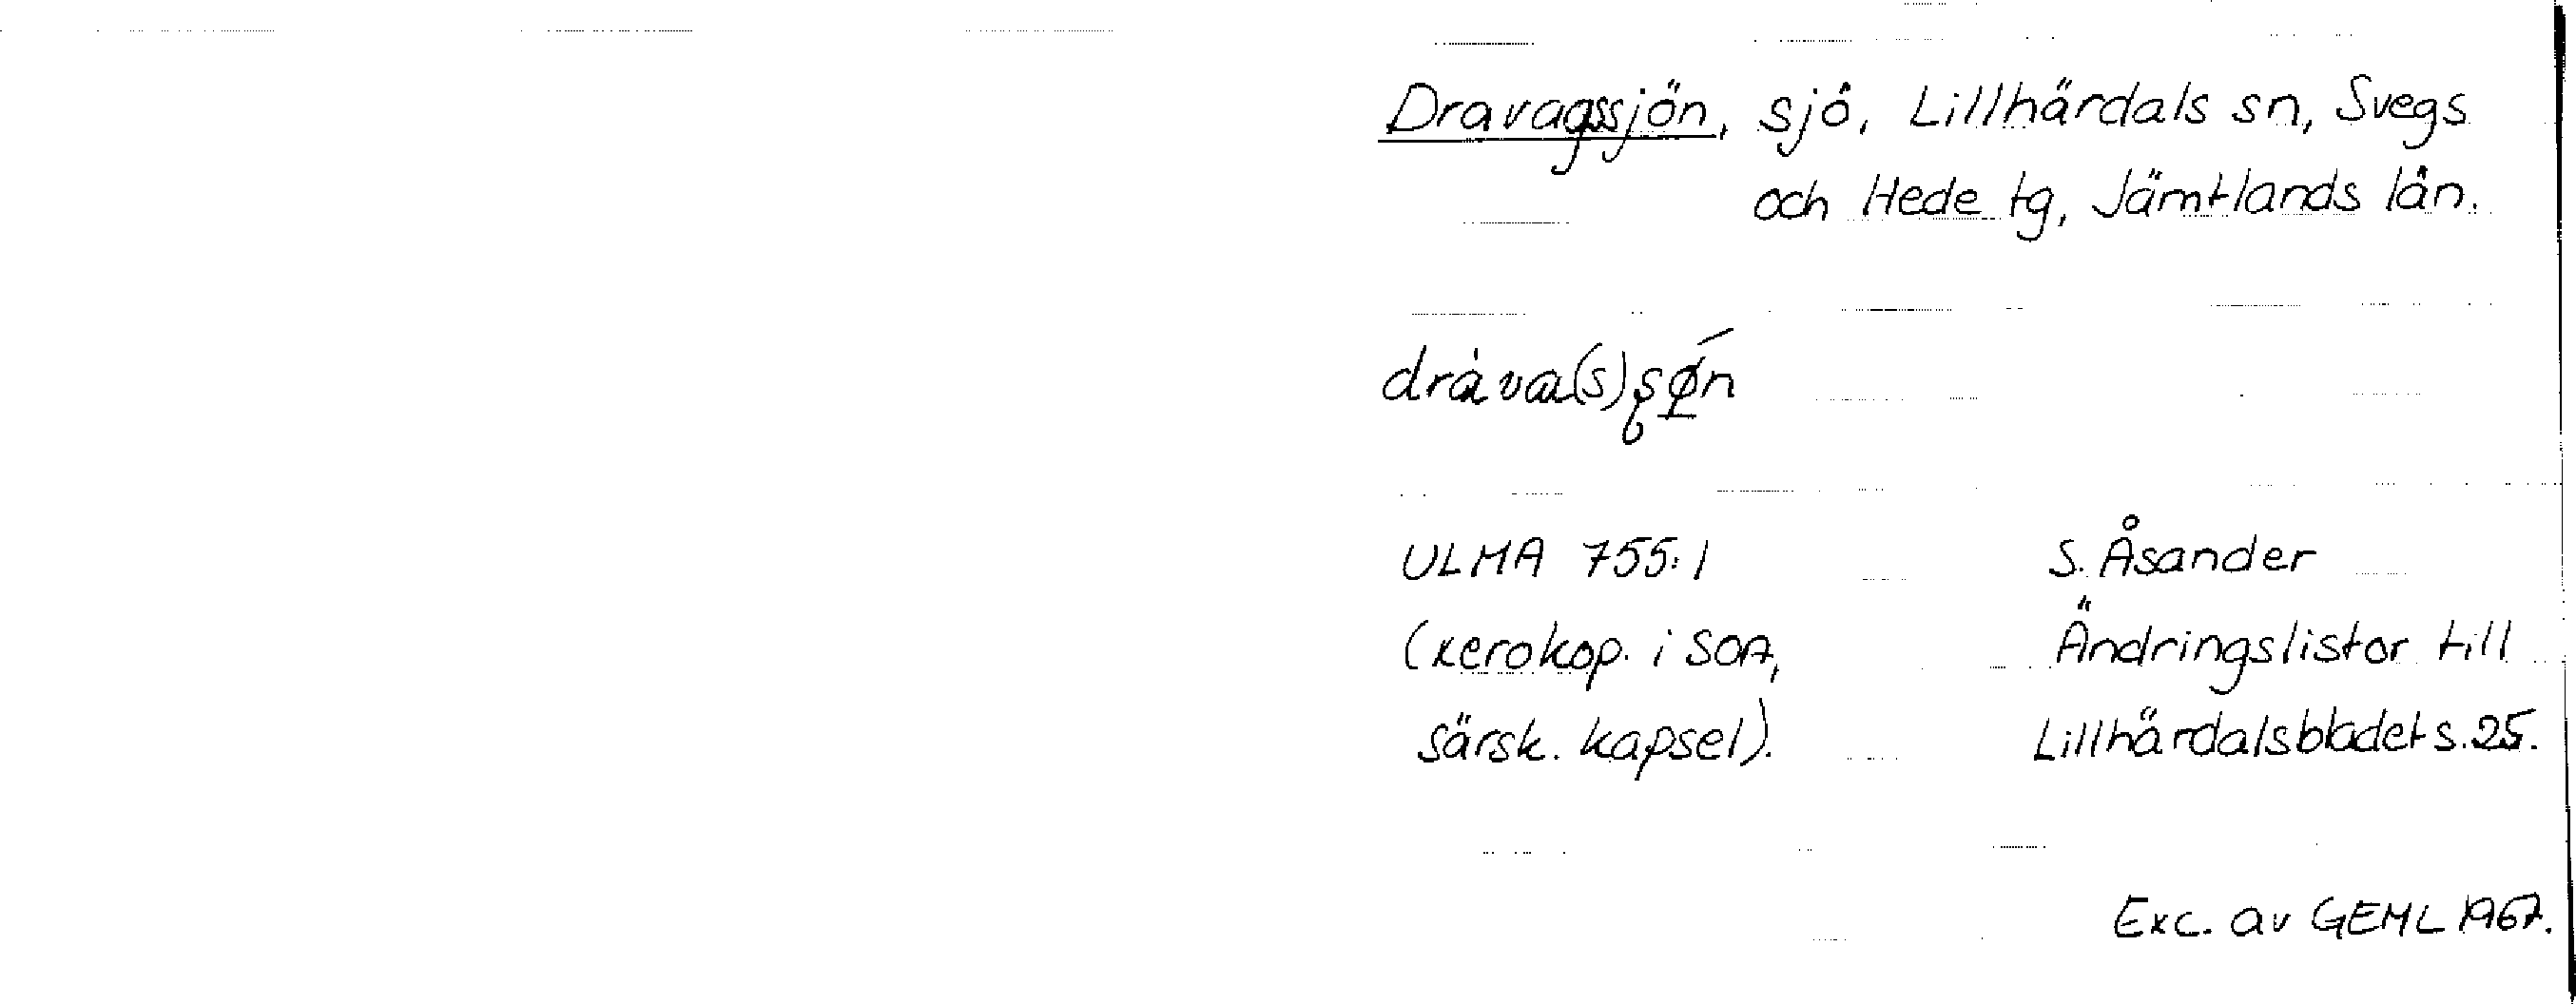 Dravagssjön, sjö, Lillhärdals sn, Svegs
och Hede tg, Jämtlands län.
ULMA 755:1
(xerokop. i SOA,
särsk. kapsel).
S. Åsander
Ändringslistor till
Lillhärdalsbladet s. 25.
Exc. av GEML 1967.